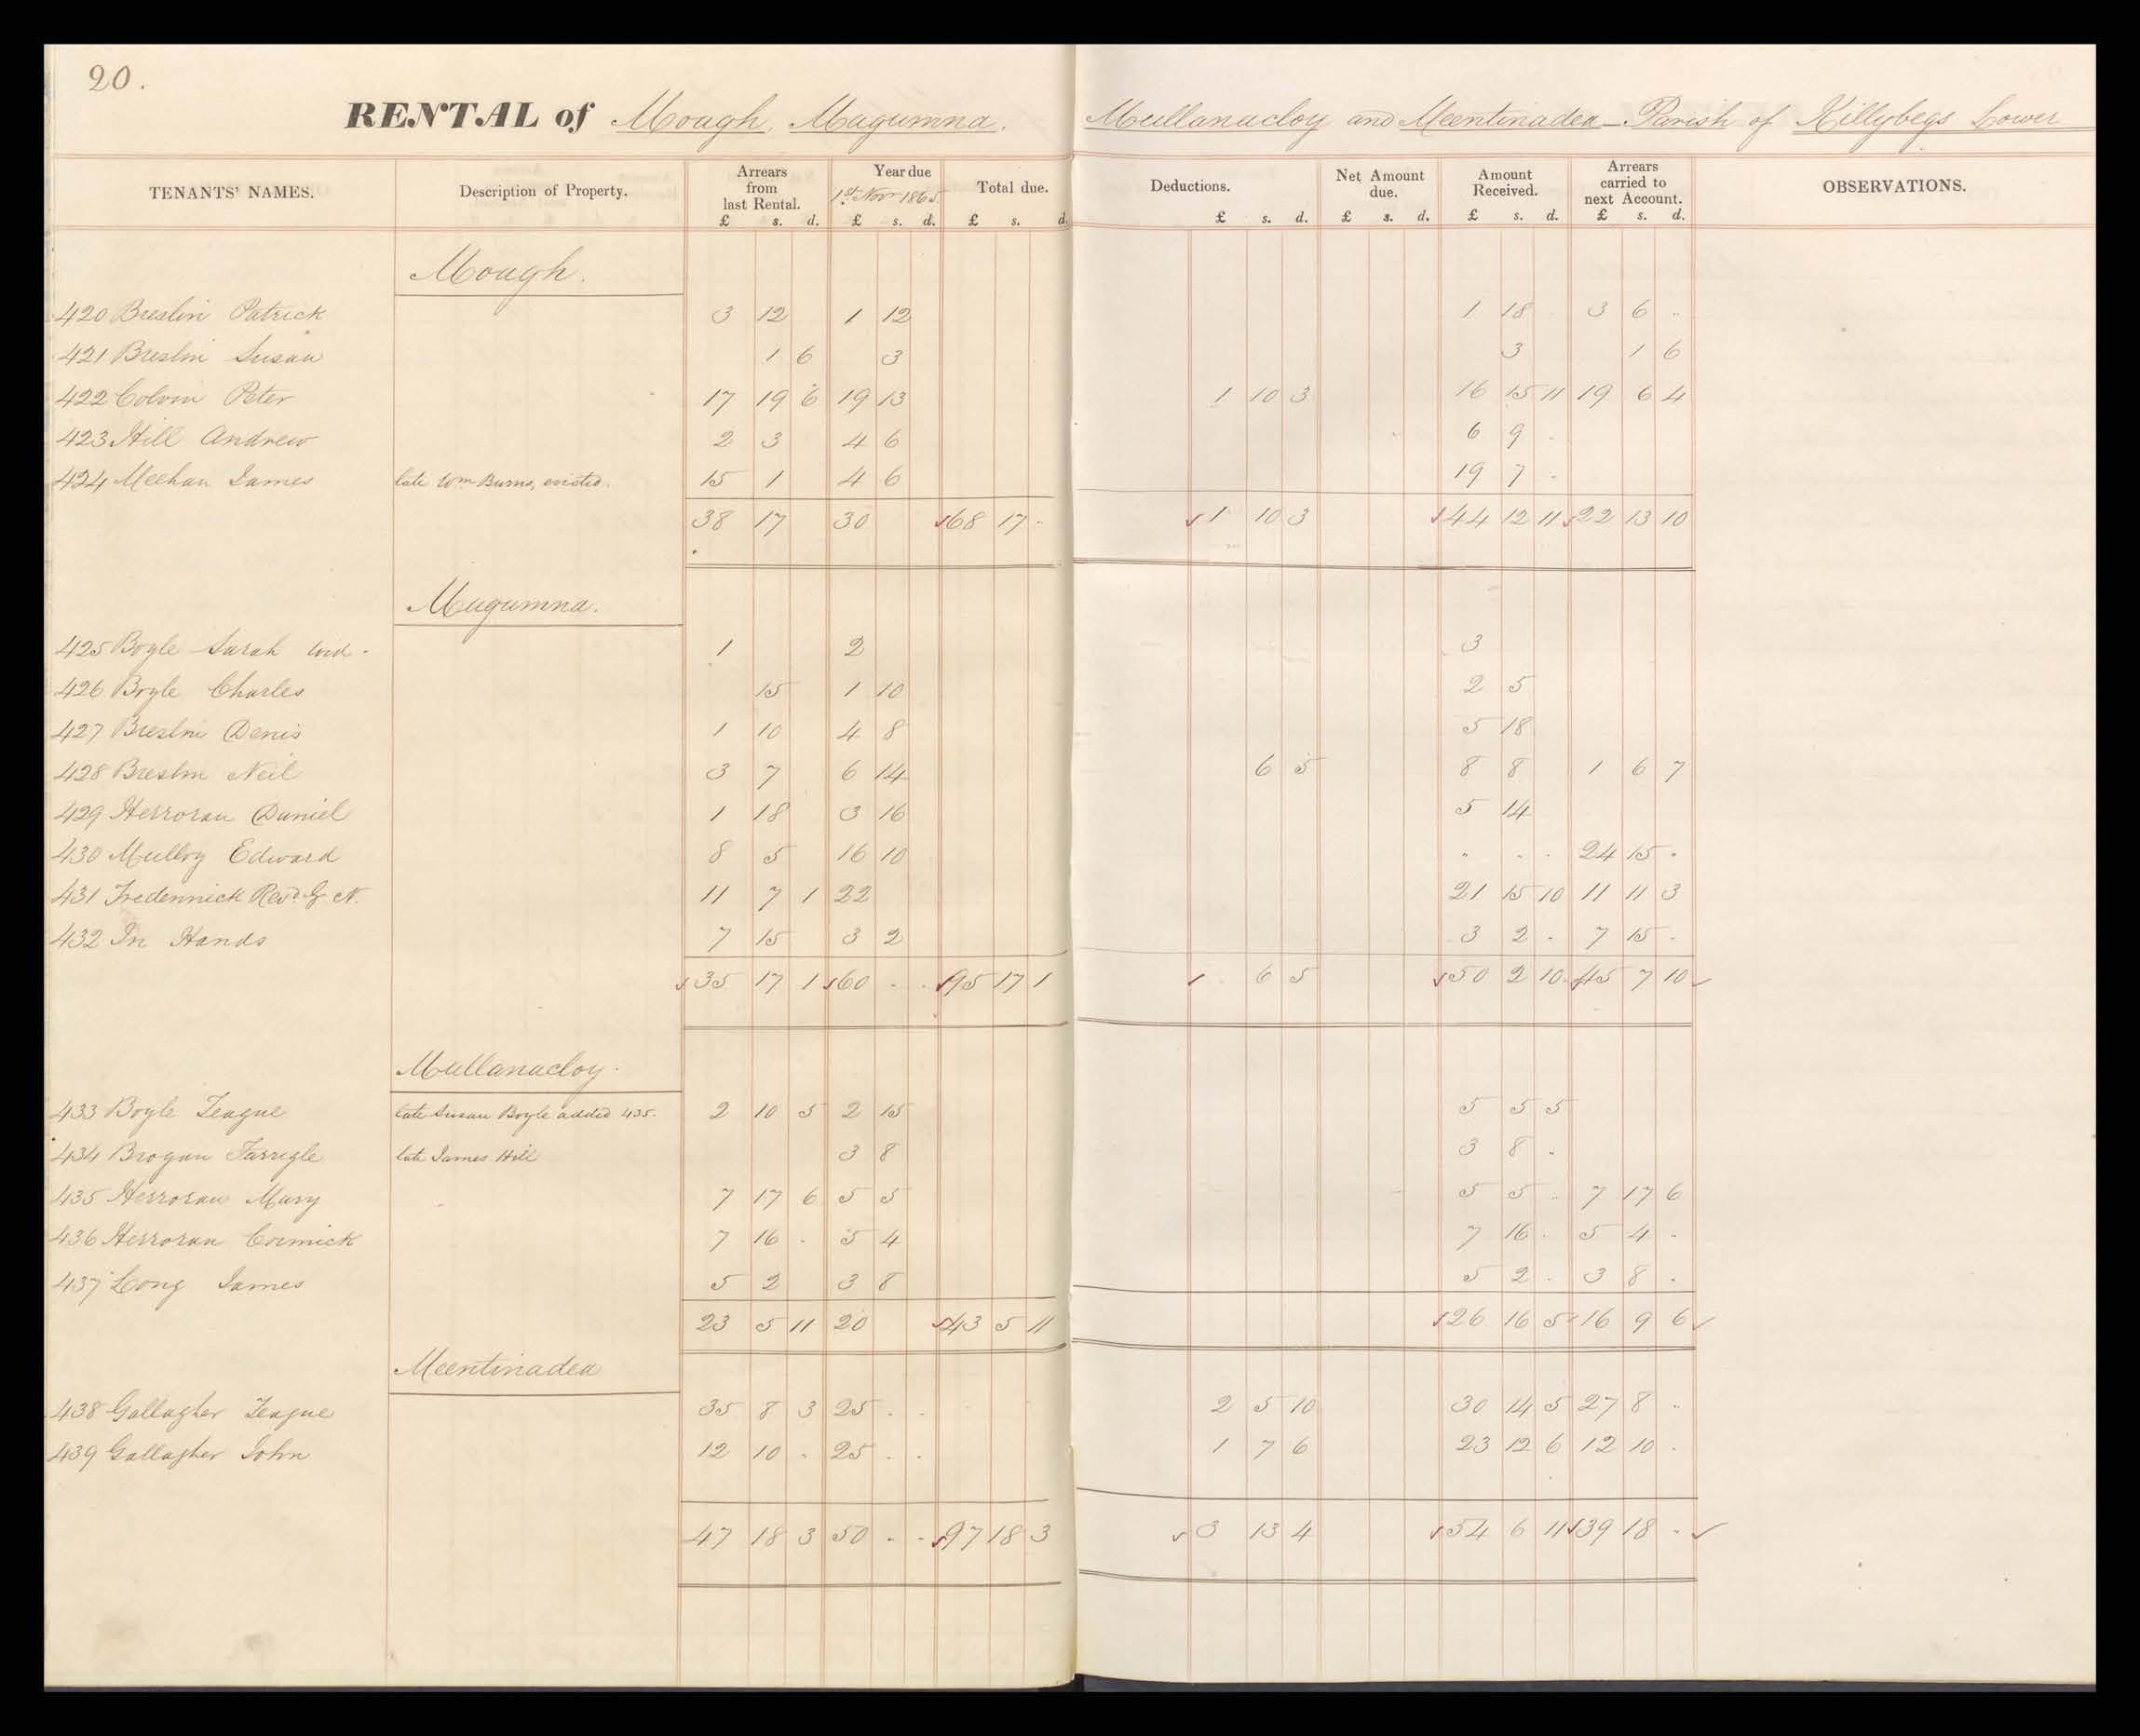 20.
RENTAL of Mough, Magumna, Mullanacloy and Meentinadea - Parish of Killybegs Lower
TENANTS' NAMES. Description of Property. Arrears from last Rental. Year due 1st Novr 1865. Total due. Deductions. Net Amount due. Amount Received. Arrears carried to next Account. OBSERVATIONS.
£ s. d. £ s. d. £ s. d. £ s. d. £ s. d. £ s. d. £ s. d.
Mough.
420 Breslin Patrick 3 12 1 12 1 18 3 6 -
421 Breslin Susan 1 6 3 3 1 6
422 Colvin Peter 17 19 6 19 13 1 10 3 16 15 11 19 6 4
423 Hill Andrew 2 3 4 6 6 9 -
424 Meehan James late Wm Burns, evicted. 15 1 4 6 19 7 -
38 17 30 68 17 - 1 10 3 44 12 11 22 13 10
Magumna.
425 Boyle Sarah wid. 1 2 3
426 Boyle Charles 15 1 10 2 5
427 Breslin Denis 1 10 4 8 5 18
428 Breslin Neil 3 7 6 14 6 5 8 8 1 6 7
429 Herroran Daniel 1 18 3 16 5 14
430 Mulloy Edward 8 5 16 10 - - - 24 15 -
431 Tredennick Revd G N. 11 7 1 22 21 15 10 11 11 3
432 In Hands 7 15 3 2 3 2 - 7 15 -
35 17 1 60 - - 95 17 1 - 6 5 50 2 10 45 7 10
Mullanacloy.
433 Boyle Teague late Susan Boyle added 435. 2 10 5 2 15 5 5 5
434 Brogan Farrigle late James Hill 3 8 3 8 -
435 Herroran Mary 7 17 6 5 5 5 5 - 7 17 6
436 Herroran Cormick 7 16 - 5 4 7 16 - 5 4 -
437 Long James 5 2 3 8 5 2 - 3 8 -
23 5 11 20 43 5 11 26 16 5 16 9 6
Meentinadea
438 Gallagher Teague 35 8 3 25 - - 2 5 10 30 14 5 27 8 -
439 Gallagher John 12 10 - 25 - - 1 7 6 23 12 6 12 10 -
47 18 3 50 - - 97 18 3 3 13 4 54 6 11 39 18 -